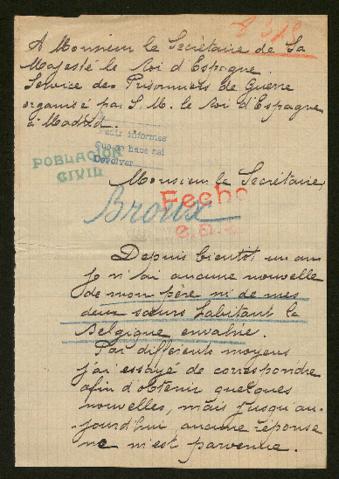 A Monsieur le Secrétaire de Sa
Majesté le Roi d'Espagne.
Service des Prisonniers de Guerre
organisé par S. M. le Roi d'Espagne
à Madrid.
Pedir informes
Devolver
POBLACION
CIVIL
Monsieur le Secrétaire
Fecho
Broux
Depuis bientôt un an
je n'ai aucune nouvelle
de mon père ni de mes
deux sœurs habitant la
Belgique envahie.
Par différents moyens
j'ai essayé de correspondre
afin d'obtenir quelques
nouvelles, mais jusqu'au-
jourd'hui aucune réponse
ne m'est parvenue.